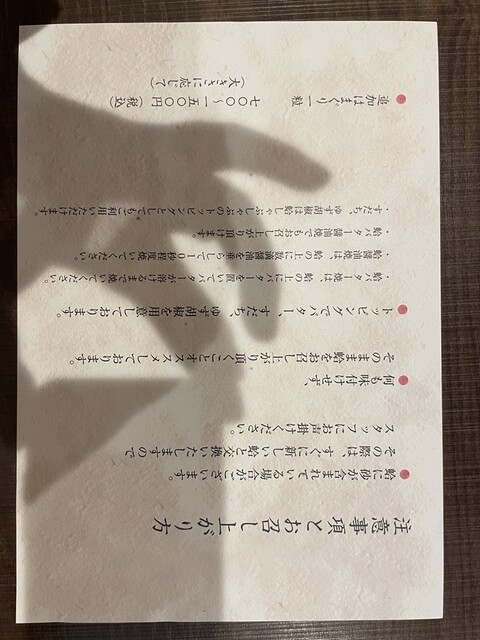 注意事項とお召し上がり方
●蛤に砂が含まれている場合がございます。
その際は、すぐに新しい蛤と交換いたしますので
スタッフにお声掛けください。
●何も味付けせず、
そのまま蛤をお召し上がり頂くことオススメしております。
●トッピングでバター、すだち、ゆず胡椒を用意しております。
・蛤バター焼は、蛤の上にバターを置いて、バターが溶けるまで焼いてください。
・蛤醤油焼は、蛤の上に数滴醤油を垂らして一〇秒程度焼いてください。
・蛤バター醤油でもお召し上がり頂けます。
・すだち、ゆず胡椒は蛤しゃぶしゃぶのトッピングとしてもご利用いただけます。
●追加はまぐり一粒
七〇〇～一五〇〇円（税込）
（大きさに応じて）